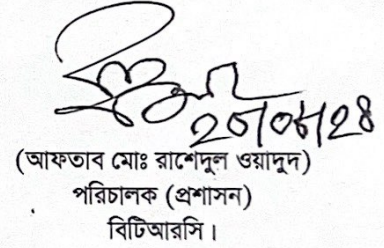 (আফতাব মোঃ রাশেদুল ওয়াদুদ)
পরিচালক (প্রশাসন)
বিটিআরসি।